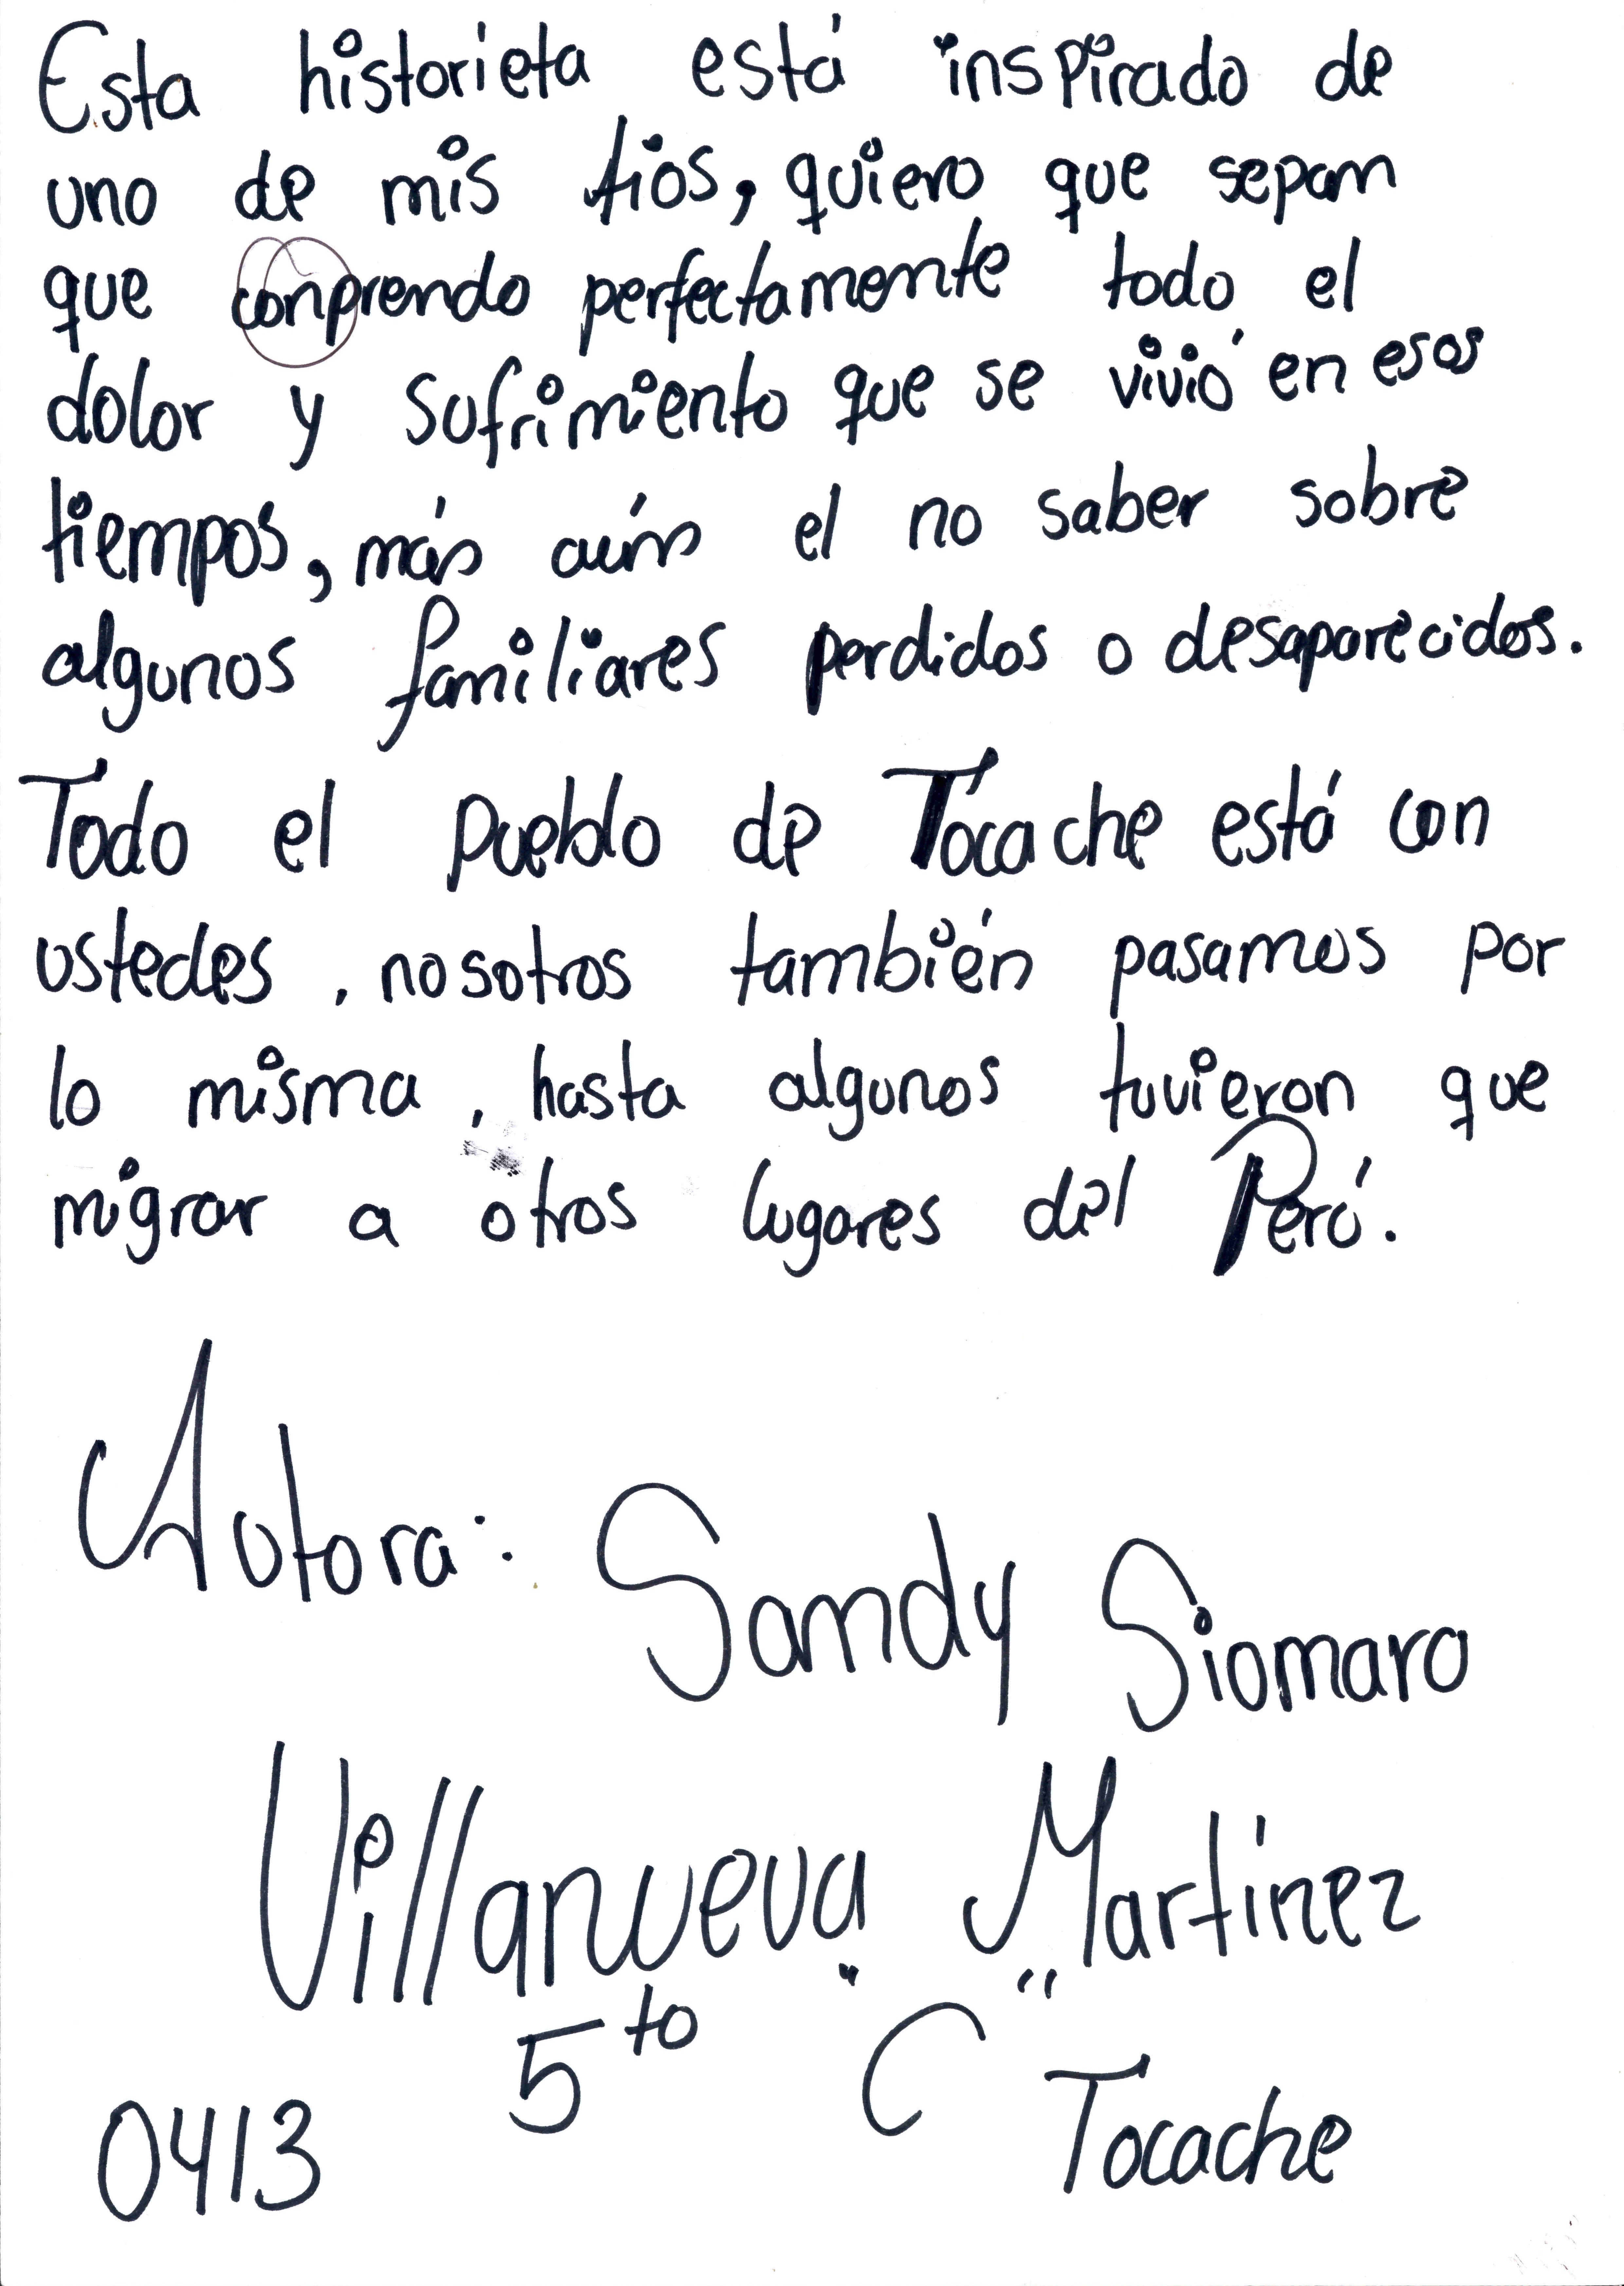 Esta historieta está inspirado de
uno de mis tios, quiero que sepan
que conprendo perfectamente todo el
dolor y sufrimiento que se vivió en esos
tiempos, más aún el no saber sobre
algunos familiares perdidos o desaparecidos.
Todo el pueblo de Tócache está con
ustedes, nosotros también pasamos por
lo misma, hasta algunos tuvieron que
migrar a otros lugares del Perú.
Autora: Sandy Siomara
Villanueva Martínez
5to "C"
0413 Tocache